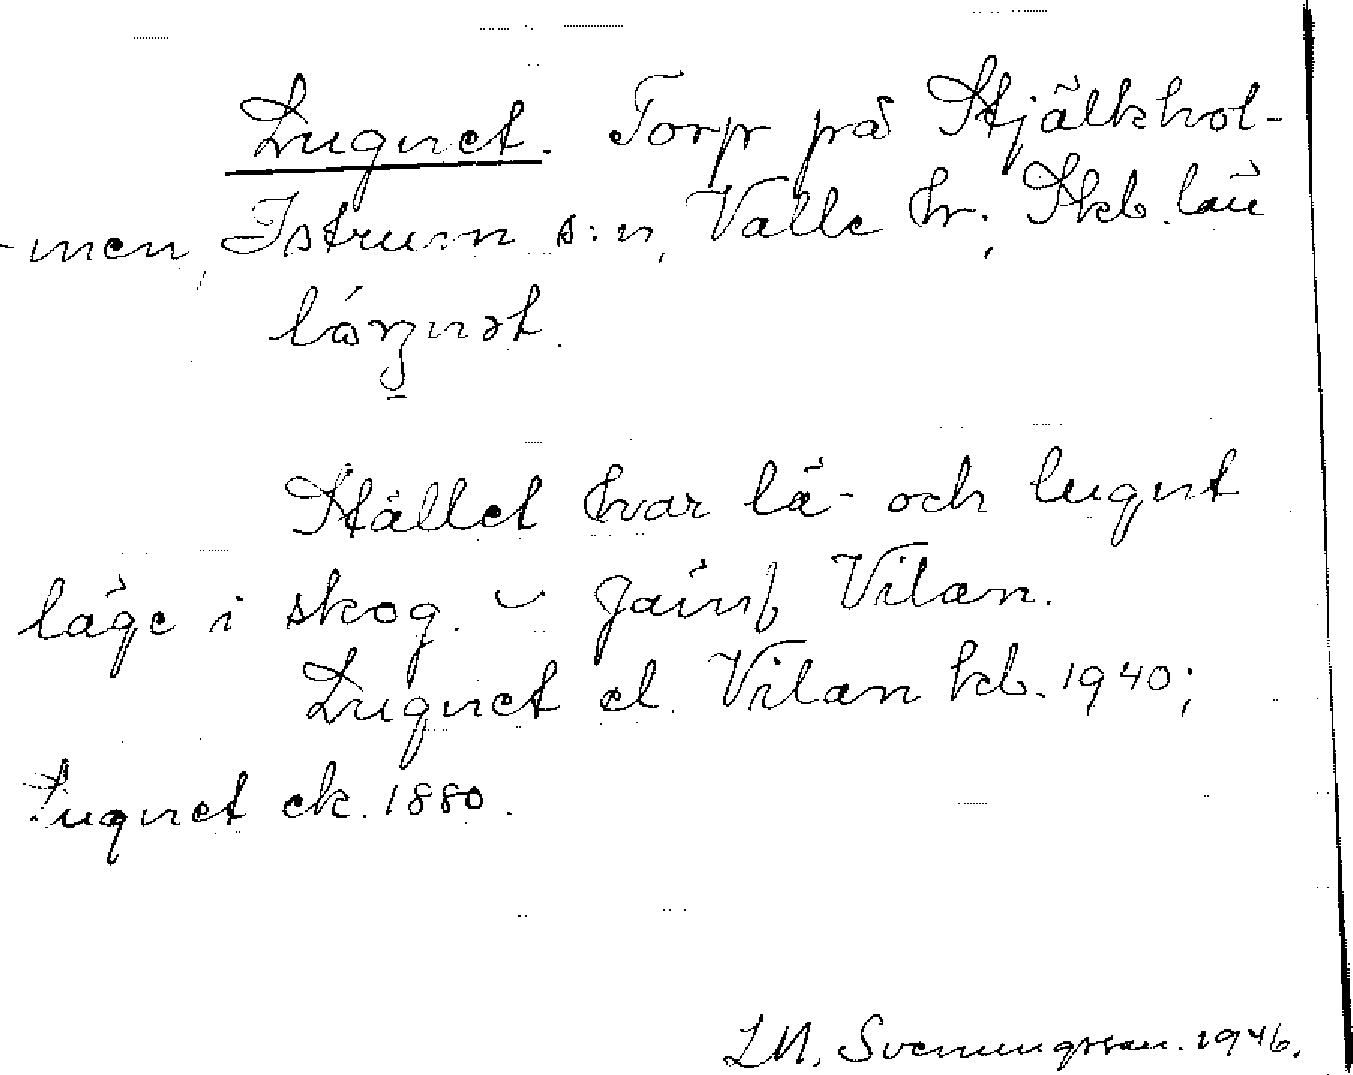 Lugnet. Torp på Stjälkhol-
-men, Istrum s:n, Valle hr., Skb. län
Stället har lä- och lugnt
läge i skog. ⌣ Jämf Vilan.
Lugnet el. Vilan kb. 1940;
Lugnet ek. 1880.
LN. Svenungsson. 1946.